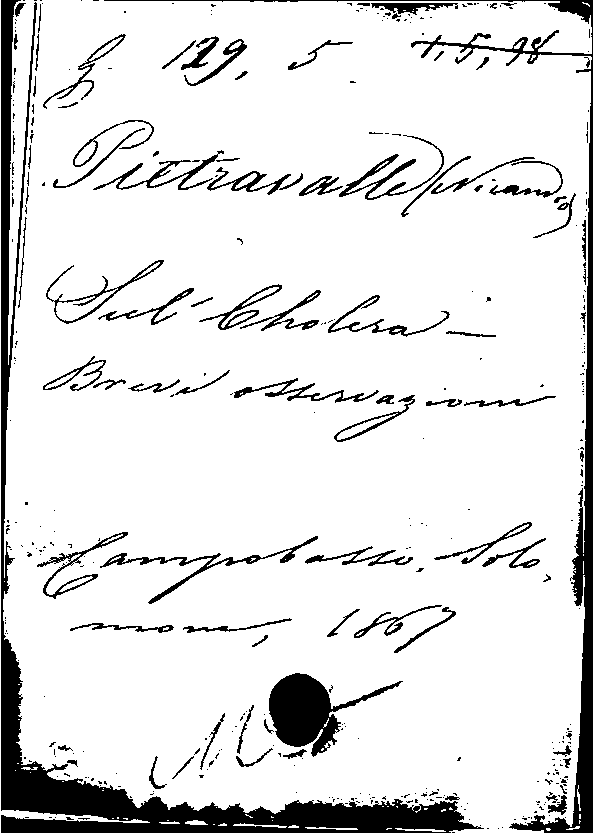 G 129, 5 1, 5, 98
Pietravalle (Nicandro)
Sul Cholera —
Brevi osservazioni
Campobasso, Solo,
mone, 1867
M